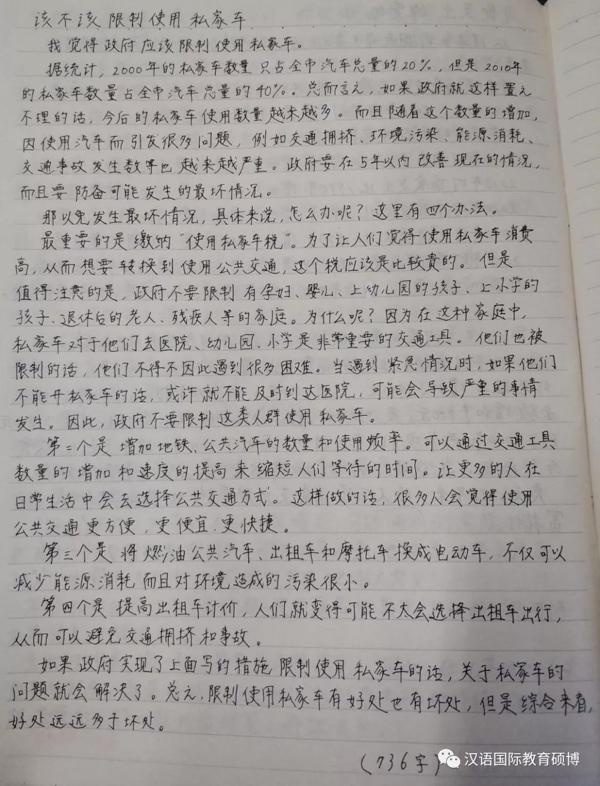 该不该限制使用私家车
我觉得政府应该限制使用私家车。
据统计，2000年的私家车数量只占全中汽车总量的20%，但是2010年
的私家车数量占全中汽车总量的40%。总而言之，如果政府就这样置之
不理的话，今后的私家车使用数量越来越多。而且随着这个数量的增加，
因使用汽车而引发很多问题，例如交通拥挤、环境污染、能源消耗、
交通事故发生数等也越来越严重。政府要在5年以内改善现在的情况，
而且要防备可能发生的最坏情况。
那以免发生最坏情况，具体来说，怎么办呢？这里有四个办法。
最重要的是缴纳“使用私家车税”。为了让人们觉得使用私家车消费
高，从而想要转换到使用公共交通，这个税应该是比较贵的。但是
值得注意的是，政府不要限制有孕妇、婴儿、上幼儿园的孩子、上小学的
孩子、退休后的老人、残疾人等的家庭。为什么呢？因为在这种家庭中，
私家车对于他们去医院、幼儿园、小学是非常重要的交通工具。他们也被
限制的话，他们不得不因此遇到很多困难。当遇到紧急情况时，如果他们
不能开私家车的话，或许就不能及时到达医院，可能会导致严重的事情
发生。因此，政府不要限制这类人群使用私家车。
第二个是增加地铁、公共汽车的数量和使用频率。可以通过交通工具
数量的增加和速度的提高来缩短人们等待的时间。让更多的人在
日常生活中会去选择公共交通方式。这样做的话，很多人会觉得使用
公共交通更方便，更便宜，更快捷。
第三个是将燃油公共汽车、出租车和摩托车换成电动车，不仅可以
减少能源消耗而且对环境造成的污染很小。
第四个是提高出租车计价，人们就变得可能不太会选择出租车出行，
从而可以避免交通拥挤和事故。
如果政府实现了上面写的措施限制使用私家车的话，关于私家车的
问题就会解决了。总之，限制使用私家车有好处也有坏处，但是综合来看，
好处远远多于坏处。
（736字）
汉语国际教育硕博